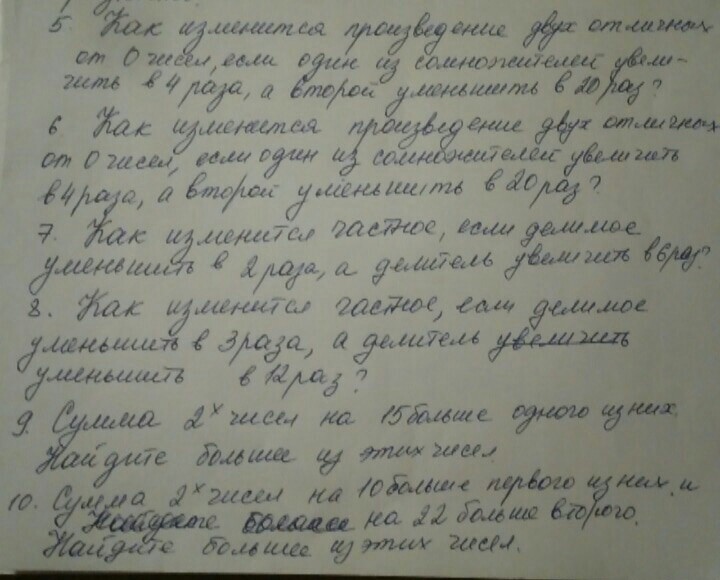 5. Как изменится произведение двух отличных
от 0 чисел, если один из сомножителей увели-
чить в 4 раза, а второй уменьшить в 20 раз?
6 Как изменится произведение двух отличных
от 0 чисел, если один из сомножителей увеличить
в 4 раза, а второй уменьшить в 20 раз?
7. Как изменится частное, если делимое
уменьшить в 2 раза, а делитель увеличить в 6 раз?
8. Как изменится частное, если делимое
уменьшить в 3 раза, а делитель увеличить
уменьшить в 12 раз?
9. Сумма 2х чисел на 15 больше одного из них.
Найдите большее из этих чисел.
10. Сумма 2х чисел на 10 больше первого из них и
на 22 больше второго.
Найдите большее из этих чисел.